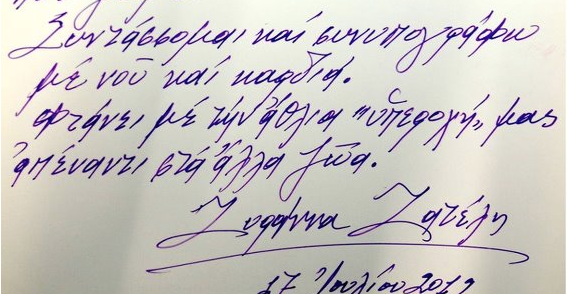 Συντάσσομαι καί συνυπογράφω
μέ νοῦ καί καρδιά.
Φτάνει μέ τήν ἄθλια "ὑπεροχή" μας
ἀπέναντι στά ἄλλα ζῶα.
Ζυράννα Ζατέλη
17 Ἰουλίου 2019